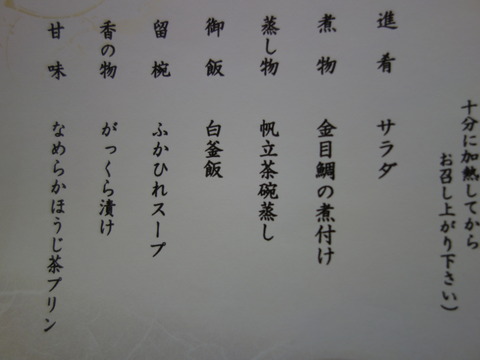 十分に加熱してから
お召し上がり下さい)
進肴 サラダ
煮物 金目鯛の煮付け
蒸し物 帆立茶碗蒸し
御飯 白釜飯
留椀 ふかひれスープ
香の物 がっくら漬け
甘味 なめらかほうじ茶プリン